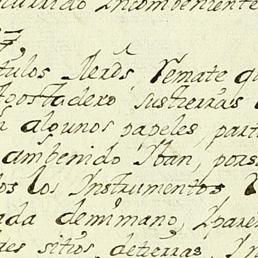 Incombeniente
tulos Merds, Remate q
Agostadero, sus tierras
algunos papeles, part
ambenido Yban, pors
os los Instrumentos
ada demimano,
es sitios, detierras, In